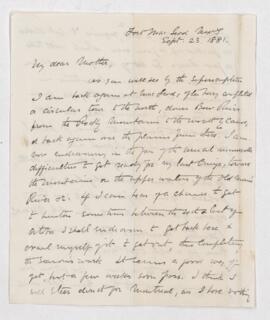 Fort Mac Leod N.W.T
Sept. 23. 1881.
My dear Mother,
As you will see by the superscription
I am back again at Mac Leod, after having completed
a circular tour to the north, down Bow River
from the Rocky Mountains to the
& back again over the plains from there. I am
now endeavouring in the face of the usual innumerable
difficulties to get ready for my last trip, towards
the mountains on the upper waters of the Old Man
River &c. If I can have a chance to get
to Benton sometime between the
I shall endeavour to get back here &
avail myself of it to get out, thus completing
the season's work. It seems a good way off
yet, but a few weeks soon pass. I think I
will steer direct for Montreal, as I have nothing